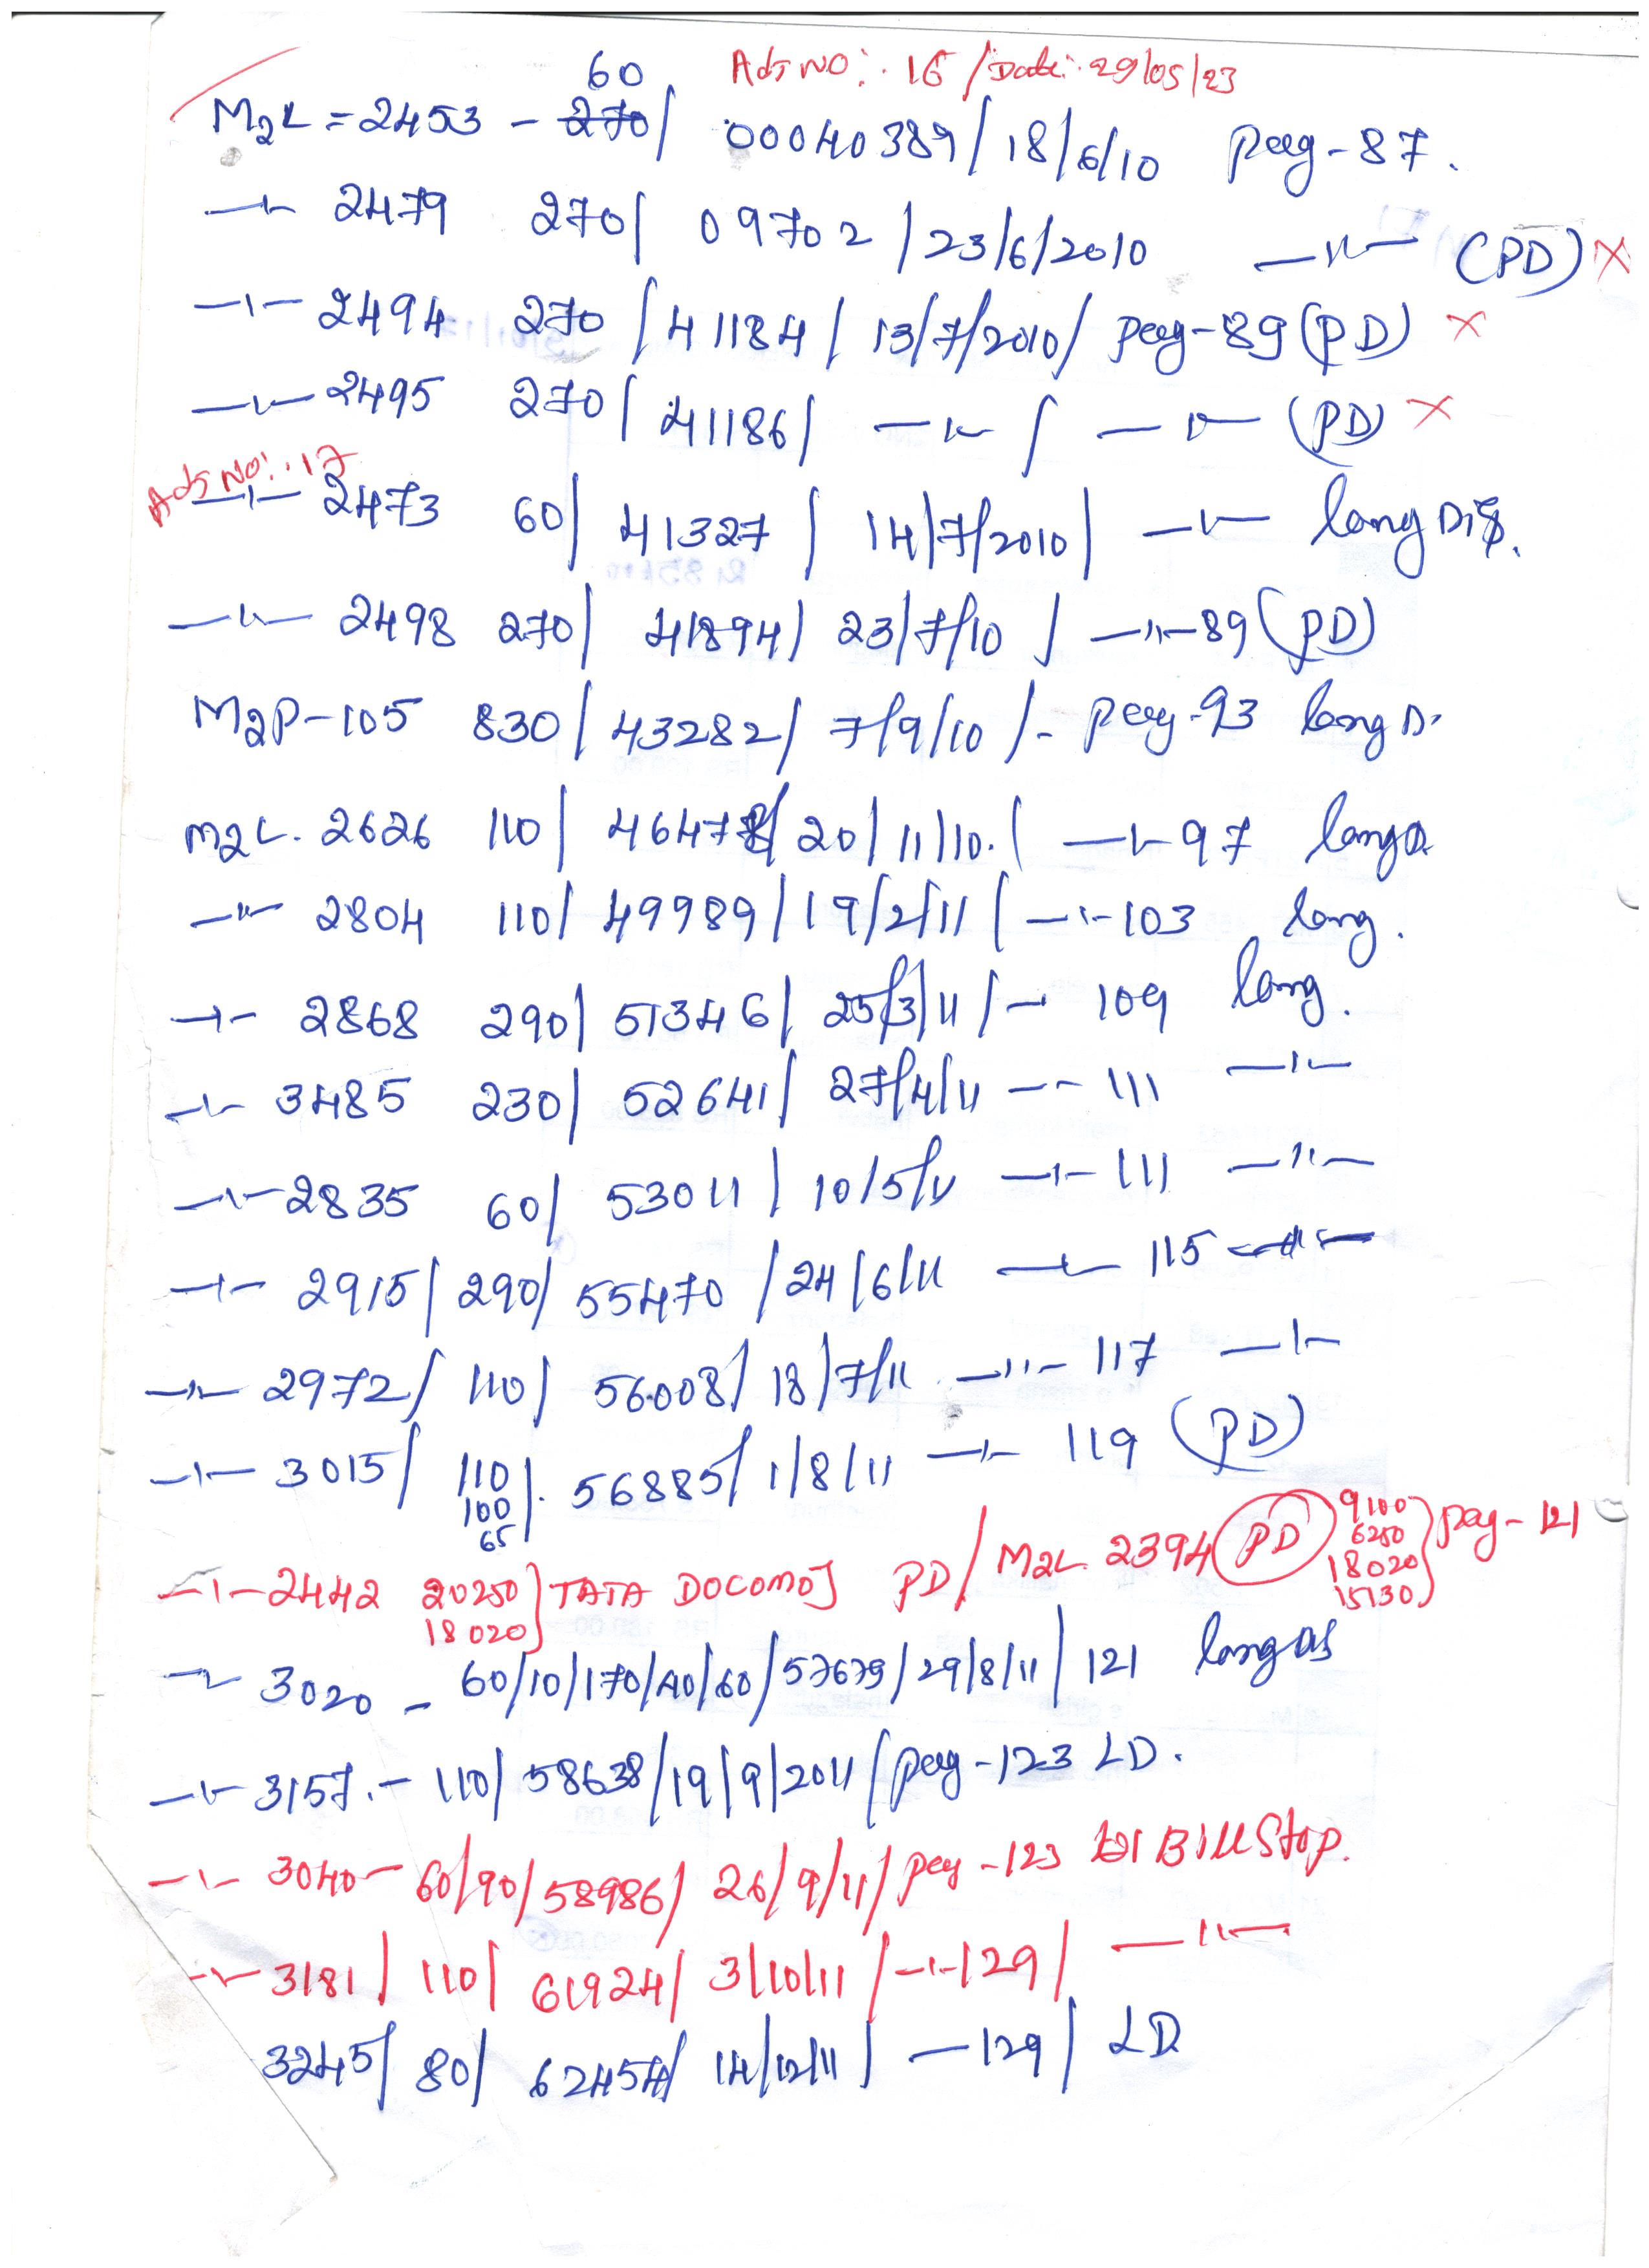 60 Adj NO:. 16 / Date:. 29/05/23
M2L = 2453 - 270/ 00040389/ 18/6/10 peg-87.
—ıı— 2479 270/ 09702 / 23/6/2010 —ıı— (PD) X
—ıı— 2494 270 / 41184 / 13/7/2010/ peg-89 (PD) X
—ıı— 2495 270/ 41186/ —ıı— / —ıı— (PD) X
Adj NO:. 17
—ıı— 2473 60/ 41327 / 14/7/2010/ —ıı— long Dis.
—ıı— 2498 270/ 41894/ 23/7/10 / —ıı—89 (PD)
M2P-105 830/ 43282/ 7/9/10 /- peg-93 long D.
M2L. 2626 110/ 46478/ 20/11/10. / —ıı— 97 long D
—ıı— 2804 110/ 49989/ 19/2/11 / —ıı—103 long.
—ıı— 2868 290/ 51346/ 25/3/11 /— 109 long.
—ıı— 3485 230/ 52641/ 27/4/11 —— 111 —ıı—
—ıı— 2835 60/ 53011 / 10/5/11 —ıı— 111 —ıı—
—ıı— 2915/ 290/ 55470 / 24/6/11 —ıı— 115 —ıı—
—ıı— 2972/ 110/ 56008/ 18/7/11 —ıı— 117 —ıı—
—ıı— 3015/ 110/. 56885/ 1/8/11 —ıı— 119 (PD)
100
65
—ıı— 2442 20250 } TATA DOCOMO PD/ M2L 2394 (PD) 9100 } peg-121
18020 6250
18020
15130
—ıı— 3020 - 60/10/170/40/60/57679/29/8/11/ 121 long DIS
—ıı— 3157.- 110/ 58638/19/9/2011/ peg-123 LD.
—ıı— 3040- 60/90/58986/ 26/9/11/ peg-123 Bill Stop.
—ıı— 3181/ 110/ 61924/ 3/10/11 /—ıı—129/ —ıı—
3245/ 80/ 62454/ 14/12/11 / —129/ LD